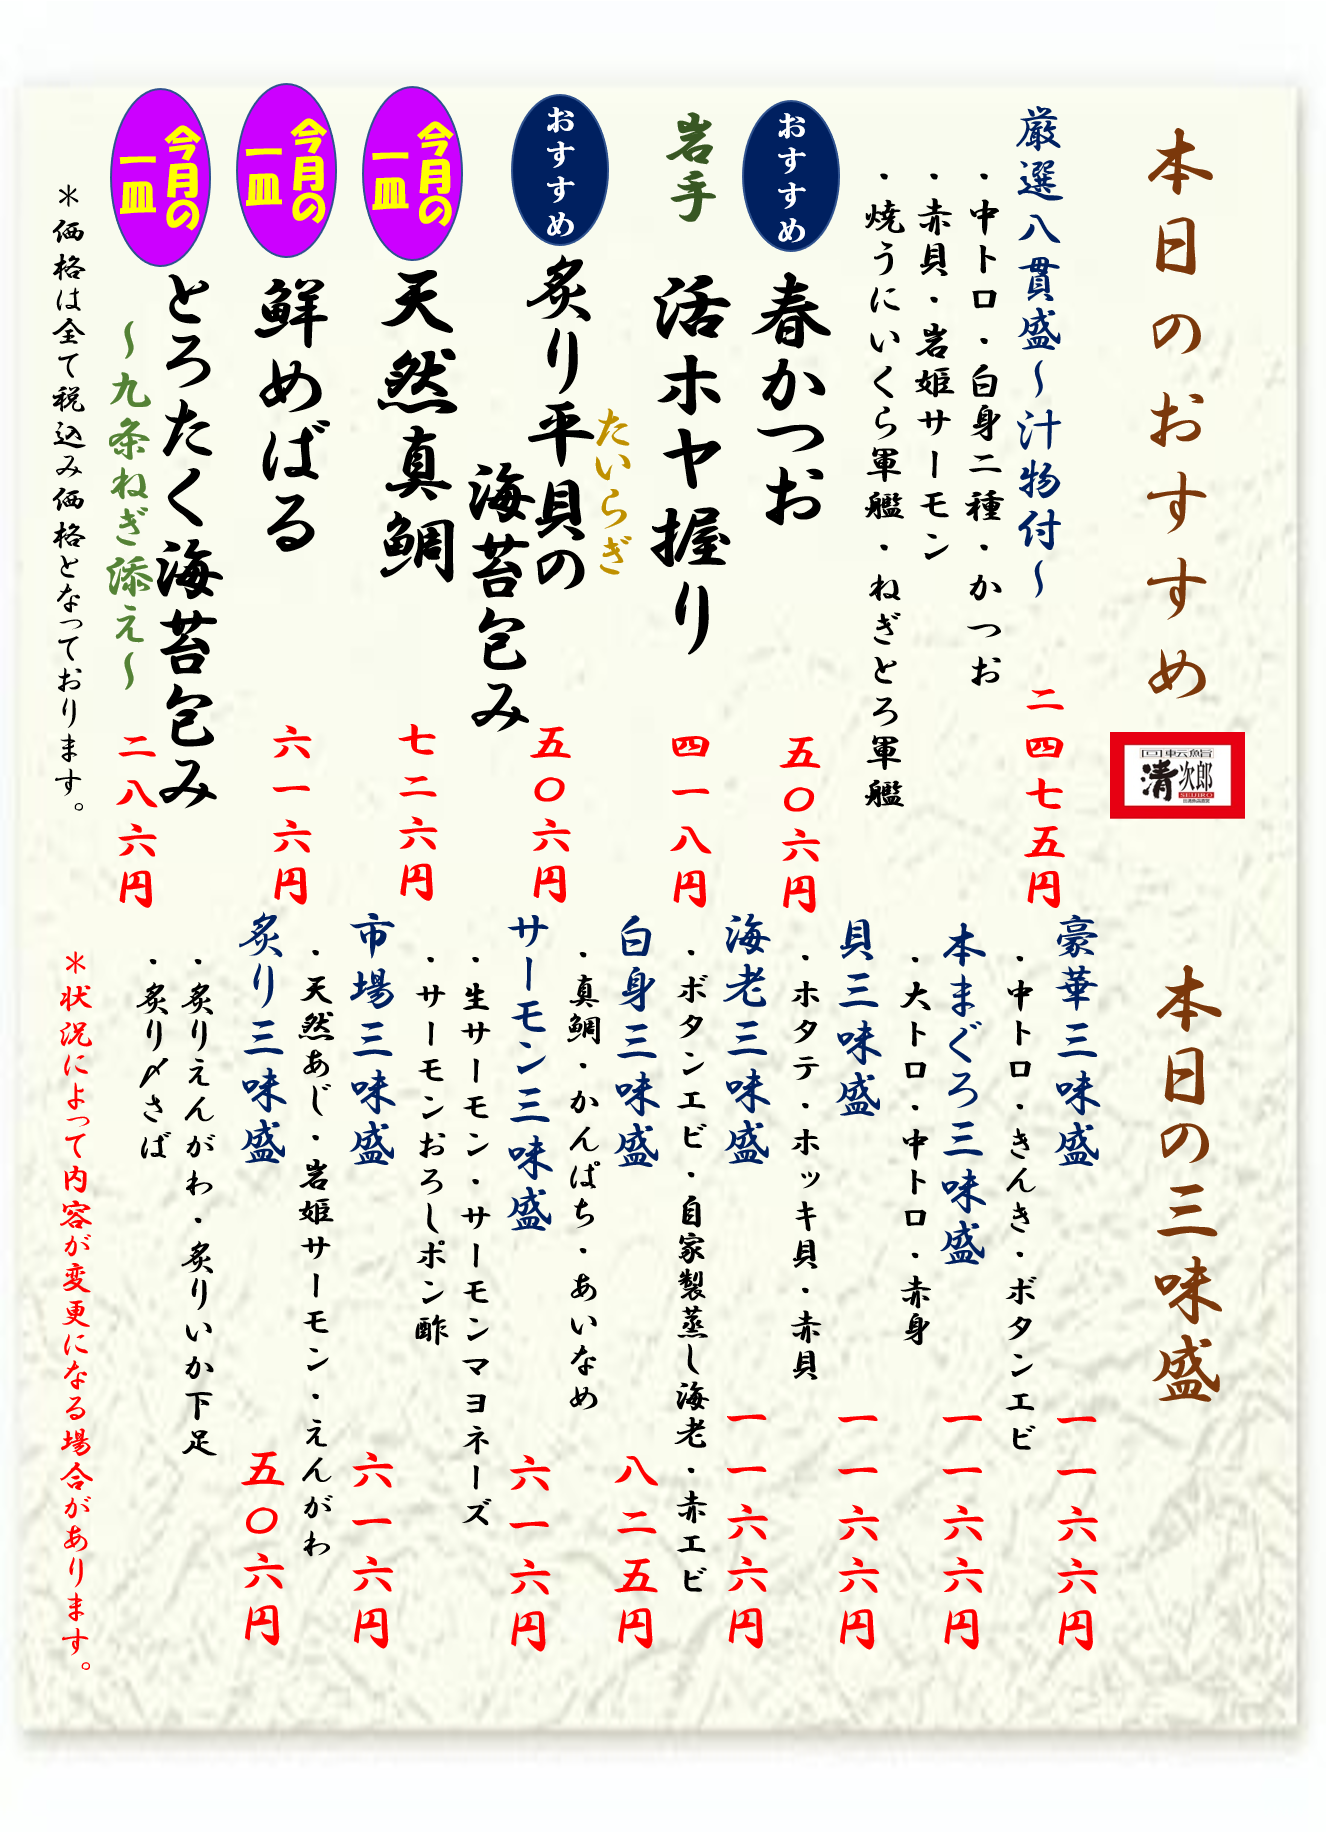 本日のおすすめ
回転鮨
清次郎
SEIJIRO
厳選八貫盛〜汁物付〜
二四七五円
・中トロ・白身二種・かつお
・赤貝・岩姫サーモン
・焼うにいくら軍艦・ねぎとろ軍艦
おすすめ
春かつお
五〇六円
岩手
活ホヤ握り
四一八円
おすすめ
たいらぎ
炙り平貝の
海苔包み
五〇六円
今月の
一皿
天然真鯛
七二六円
今月の
一皿
鮮めばる
六一六円
今月の
一皿
とろたく海苔包み
〜九条ねぎ添え〜
二八六円
＊価格は全て税込み価格となっております。
本日の三味盛
豪華三味盛
一一六六円
・中トロ・きんき・ボタンエビ
本まぐろ三味盛
一一六六円
・大トロ・中トロ・赤身
貝三味盛
一一六六円
・ホタテ・ホッキ貝・赤貝
海老三味盛
一一六六円
・ボタンエビ・自家製蒸し海老・赤エビ
白身三味盛
八二五円
・真鯛・かんぱち・あいなめ
サーモン三味盛
六一六円
・生サーモン・サーモンマヨネーズ
・サーモンおろしポン酢
市場三味盛
六一六円
・天然あじ・岩姫サーモン・えんがわ
炙り三味盛
五〇六円
・炙りえんがわ・炙りいか下足
・炙り〆さば
＊状況によって内容が変更になる場合があります。